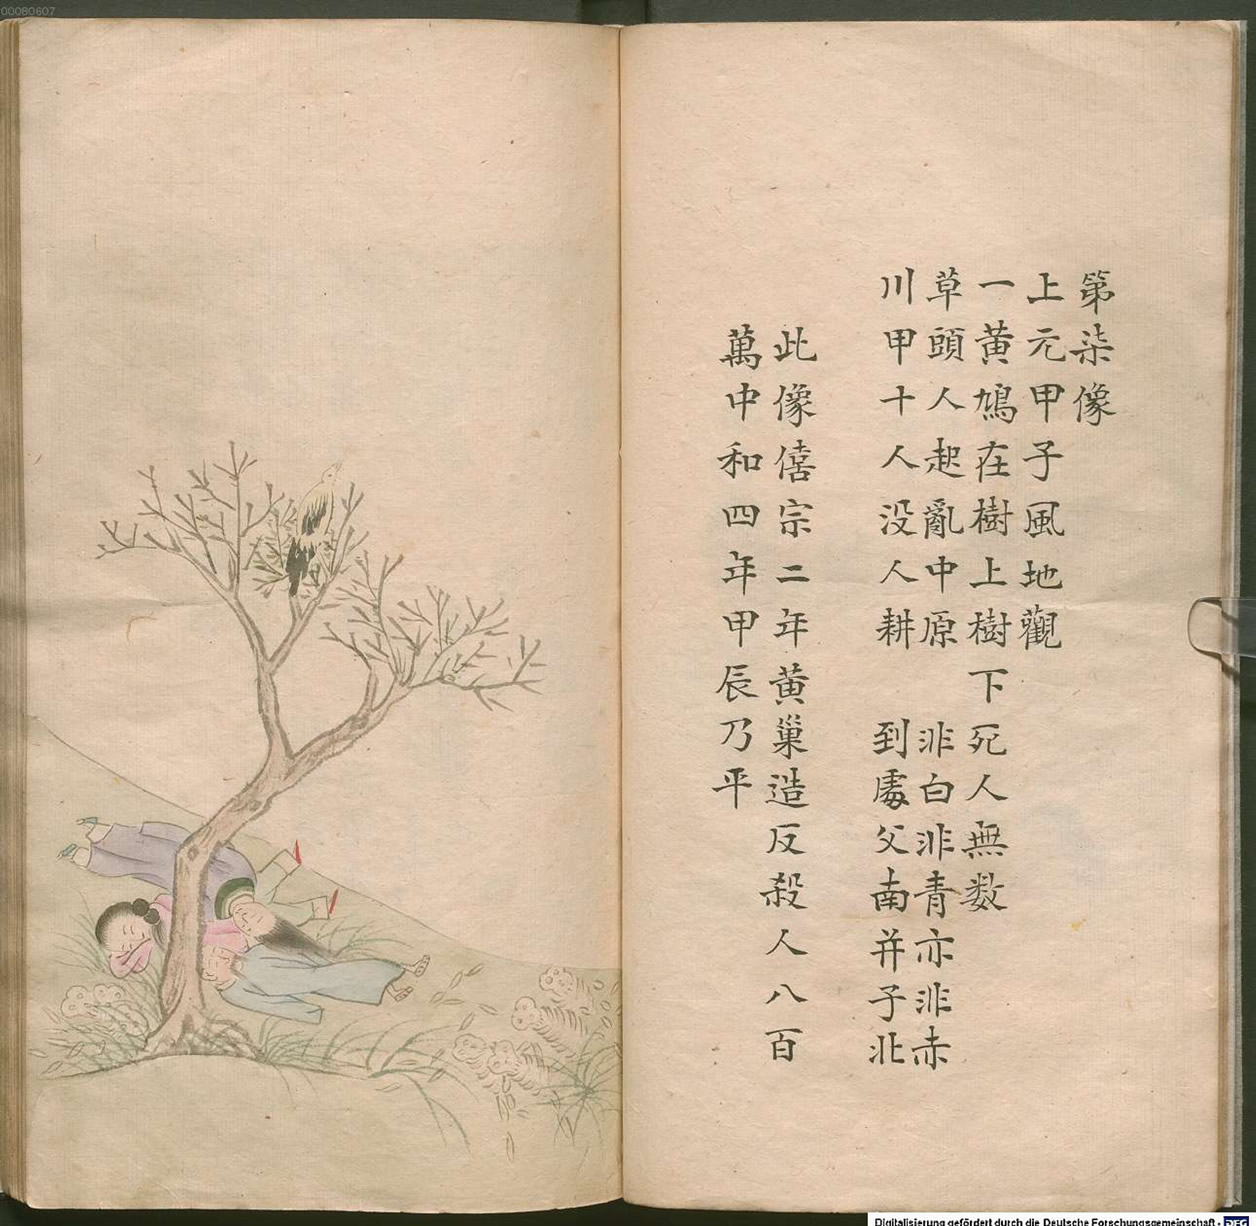 00080607
第柒像
上元甲子風地觀
一黃鳩在樹上樹下死人無数
草頭人起亂中原 非白非青亦非赤
川甲十人没人耕 到處父南并子北
此像僖宗二年黃巢造反殺人八百
萬中和四年甲辰乃平
Digitalisierung gefördert durch die Deutsche Forschungsgemeinschaft - DFG